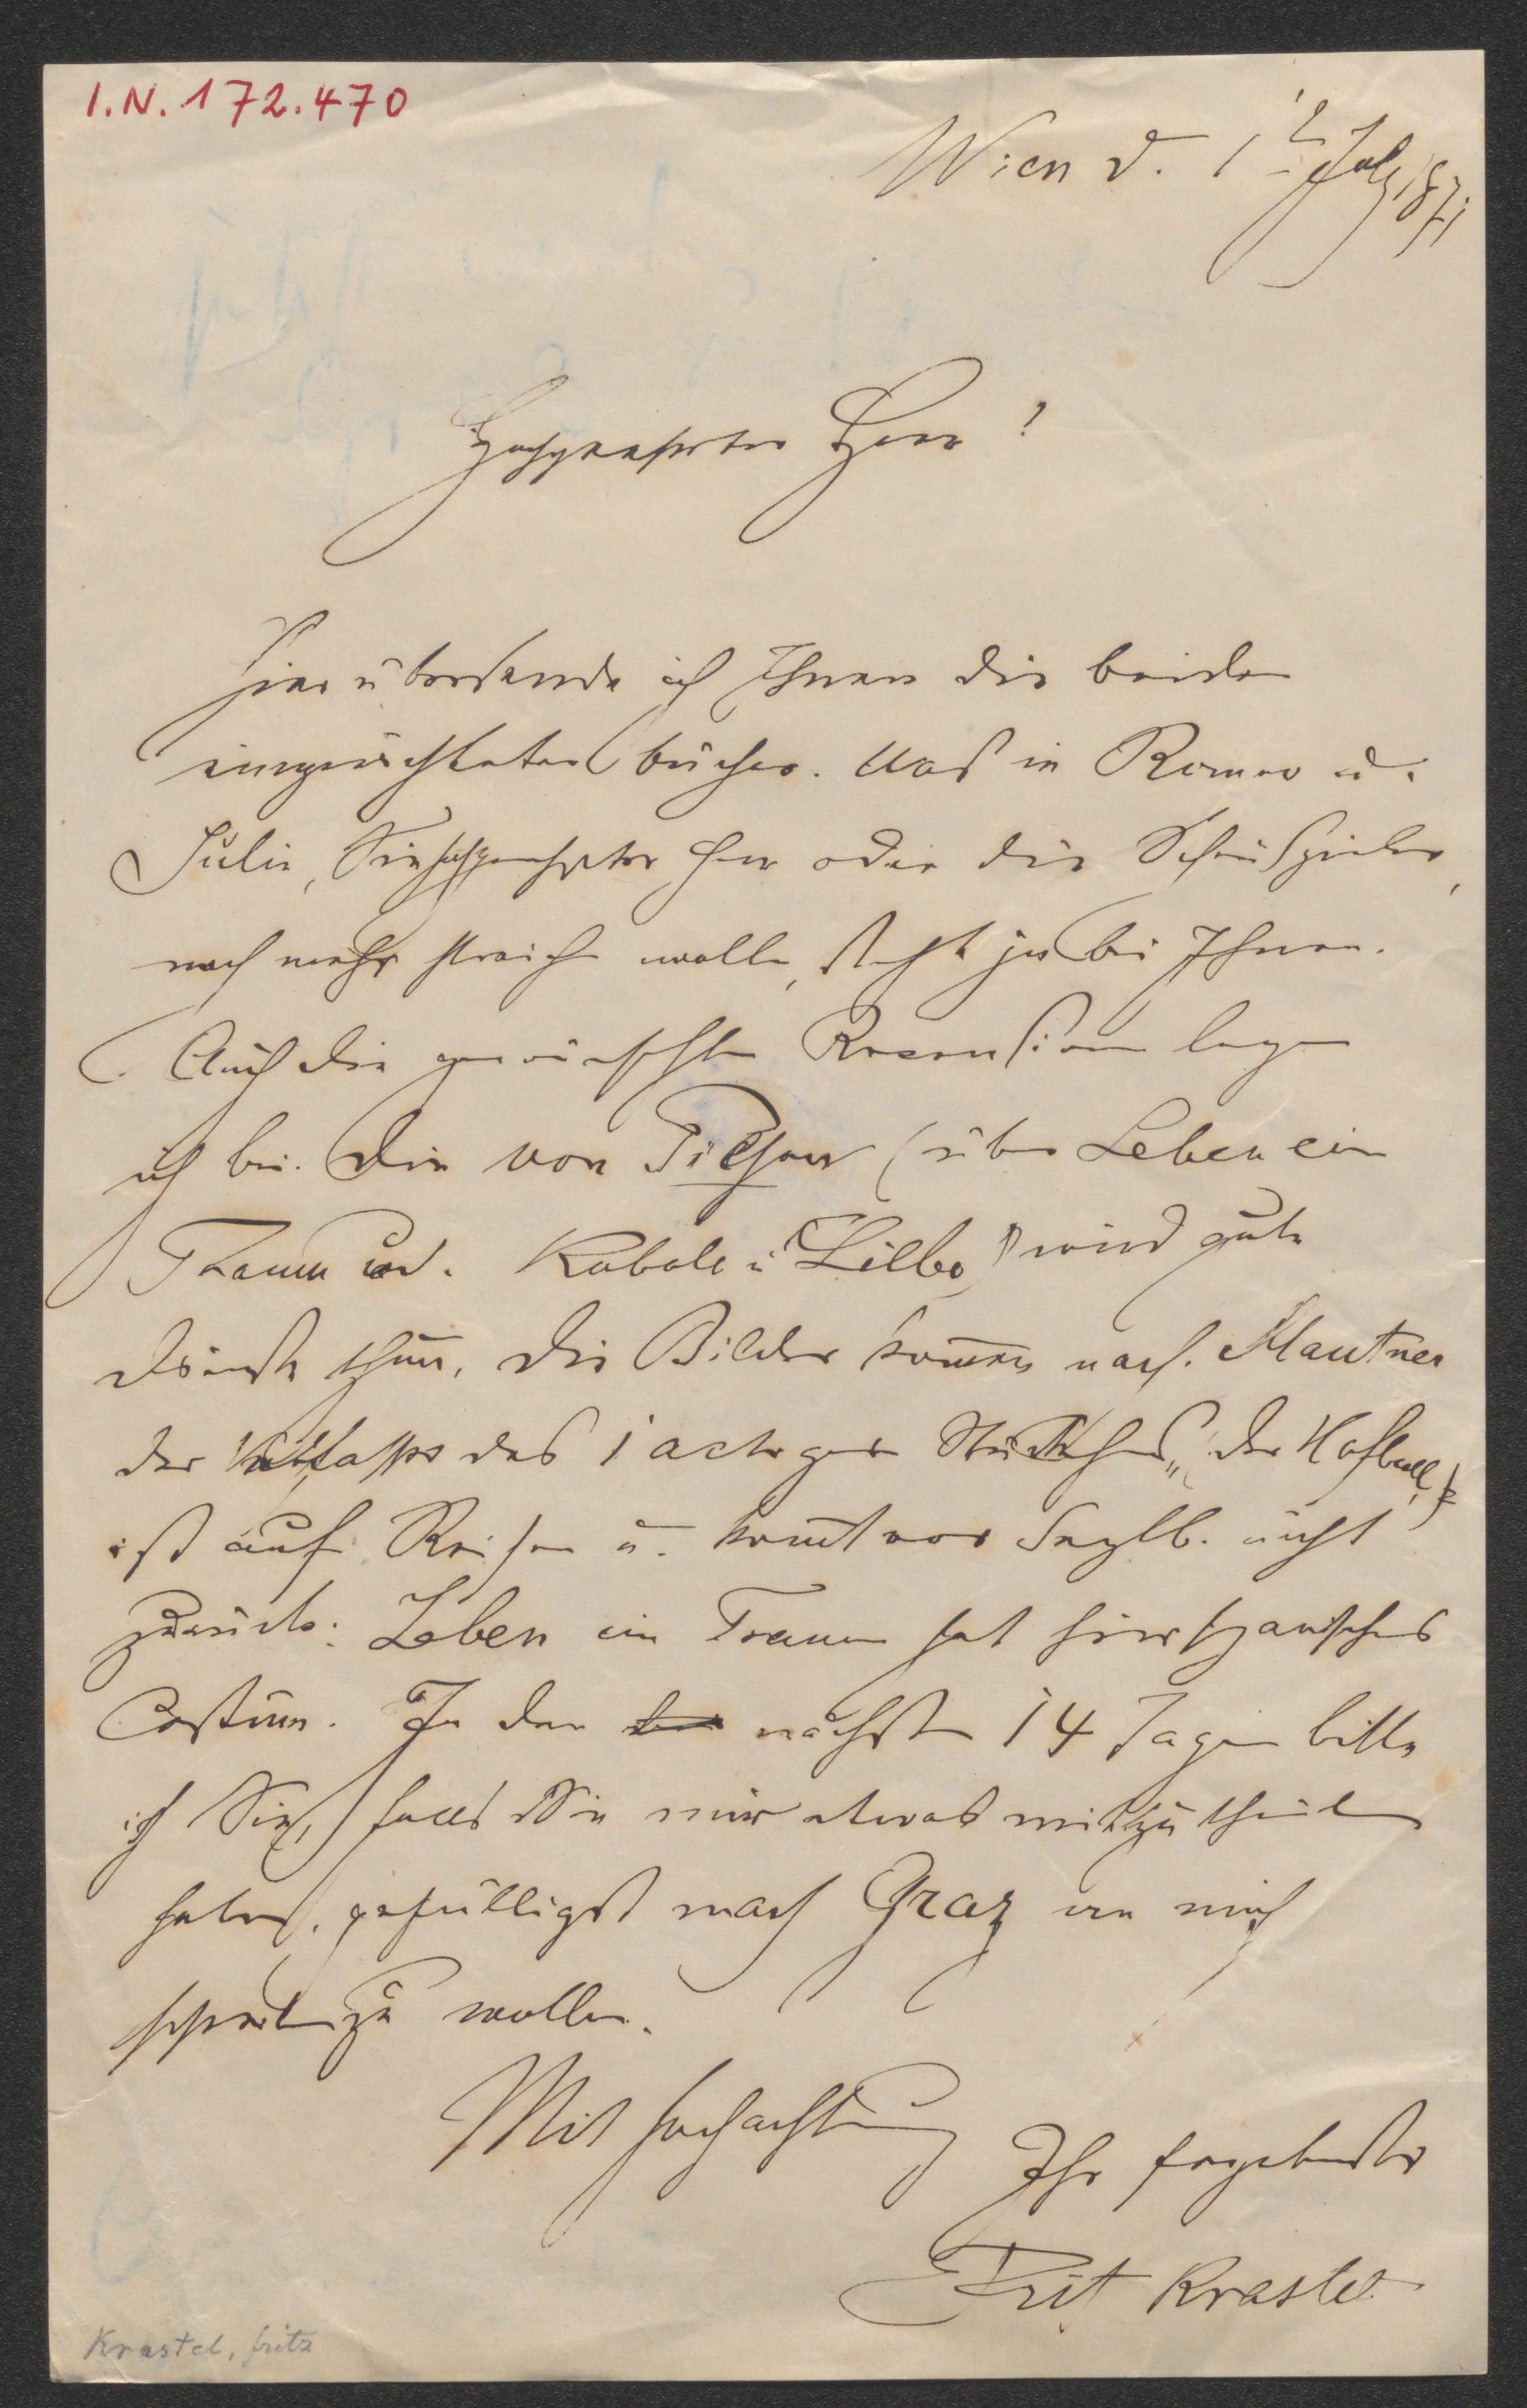 I.N. 172.470
Wien d. 1t July 1871
Hochgeehrter Herr!
Hier übersende ich Ihnen die beiden
eingerichteten bücher. Was in Romeo u.
Julie, Sie hochgeehrter Herr oder die Schauspieler,
noch mehr streichen wollen, steht ja bei Ihnen.
Auch die gewünschten Recensionen lege
ich bei. Die von (über Leben ein
Traum ud. Kabale u Liebe) wird gute
Dienste thun. Die Bilder kom̅en nach. Mautner
der Verfasser des 1 actigen Stückchens „der Hofball“
ist auf Reisen u. kom̅t vor Septb. nicht
zurück. Leben ein Traum hat hier spanisches
Costüm. In den nächsten 14 Tagen bitte
ich Sie, falls Sie mir etwas mitzutheilen
haben, gefälligst nach Graz an mich
schreiben zu wollen.
Mit Hochachtung
Ihr ergebenster
Fritz Krastel
Krastel, Fritz